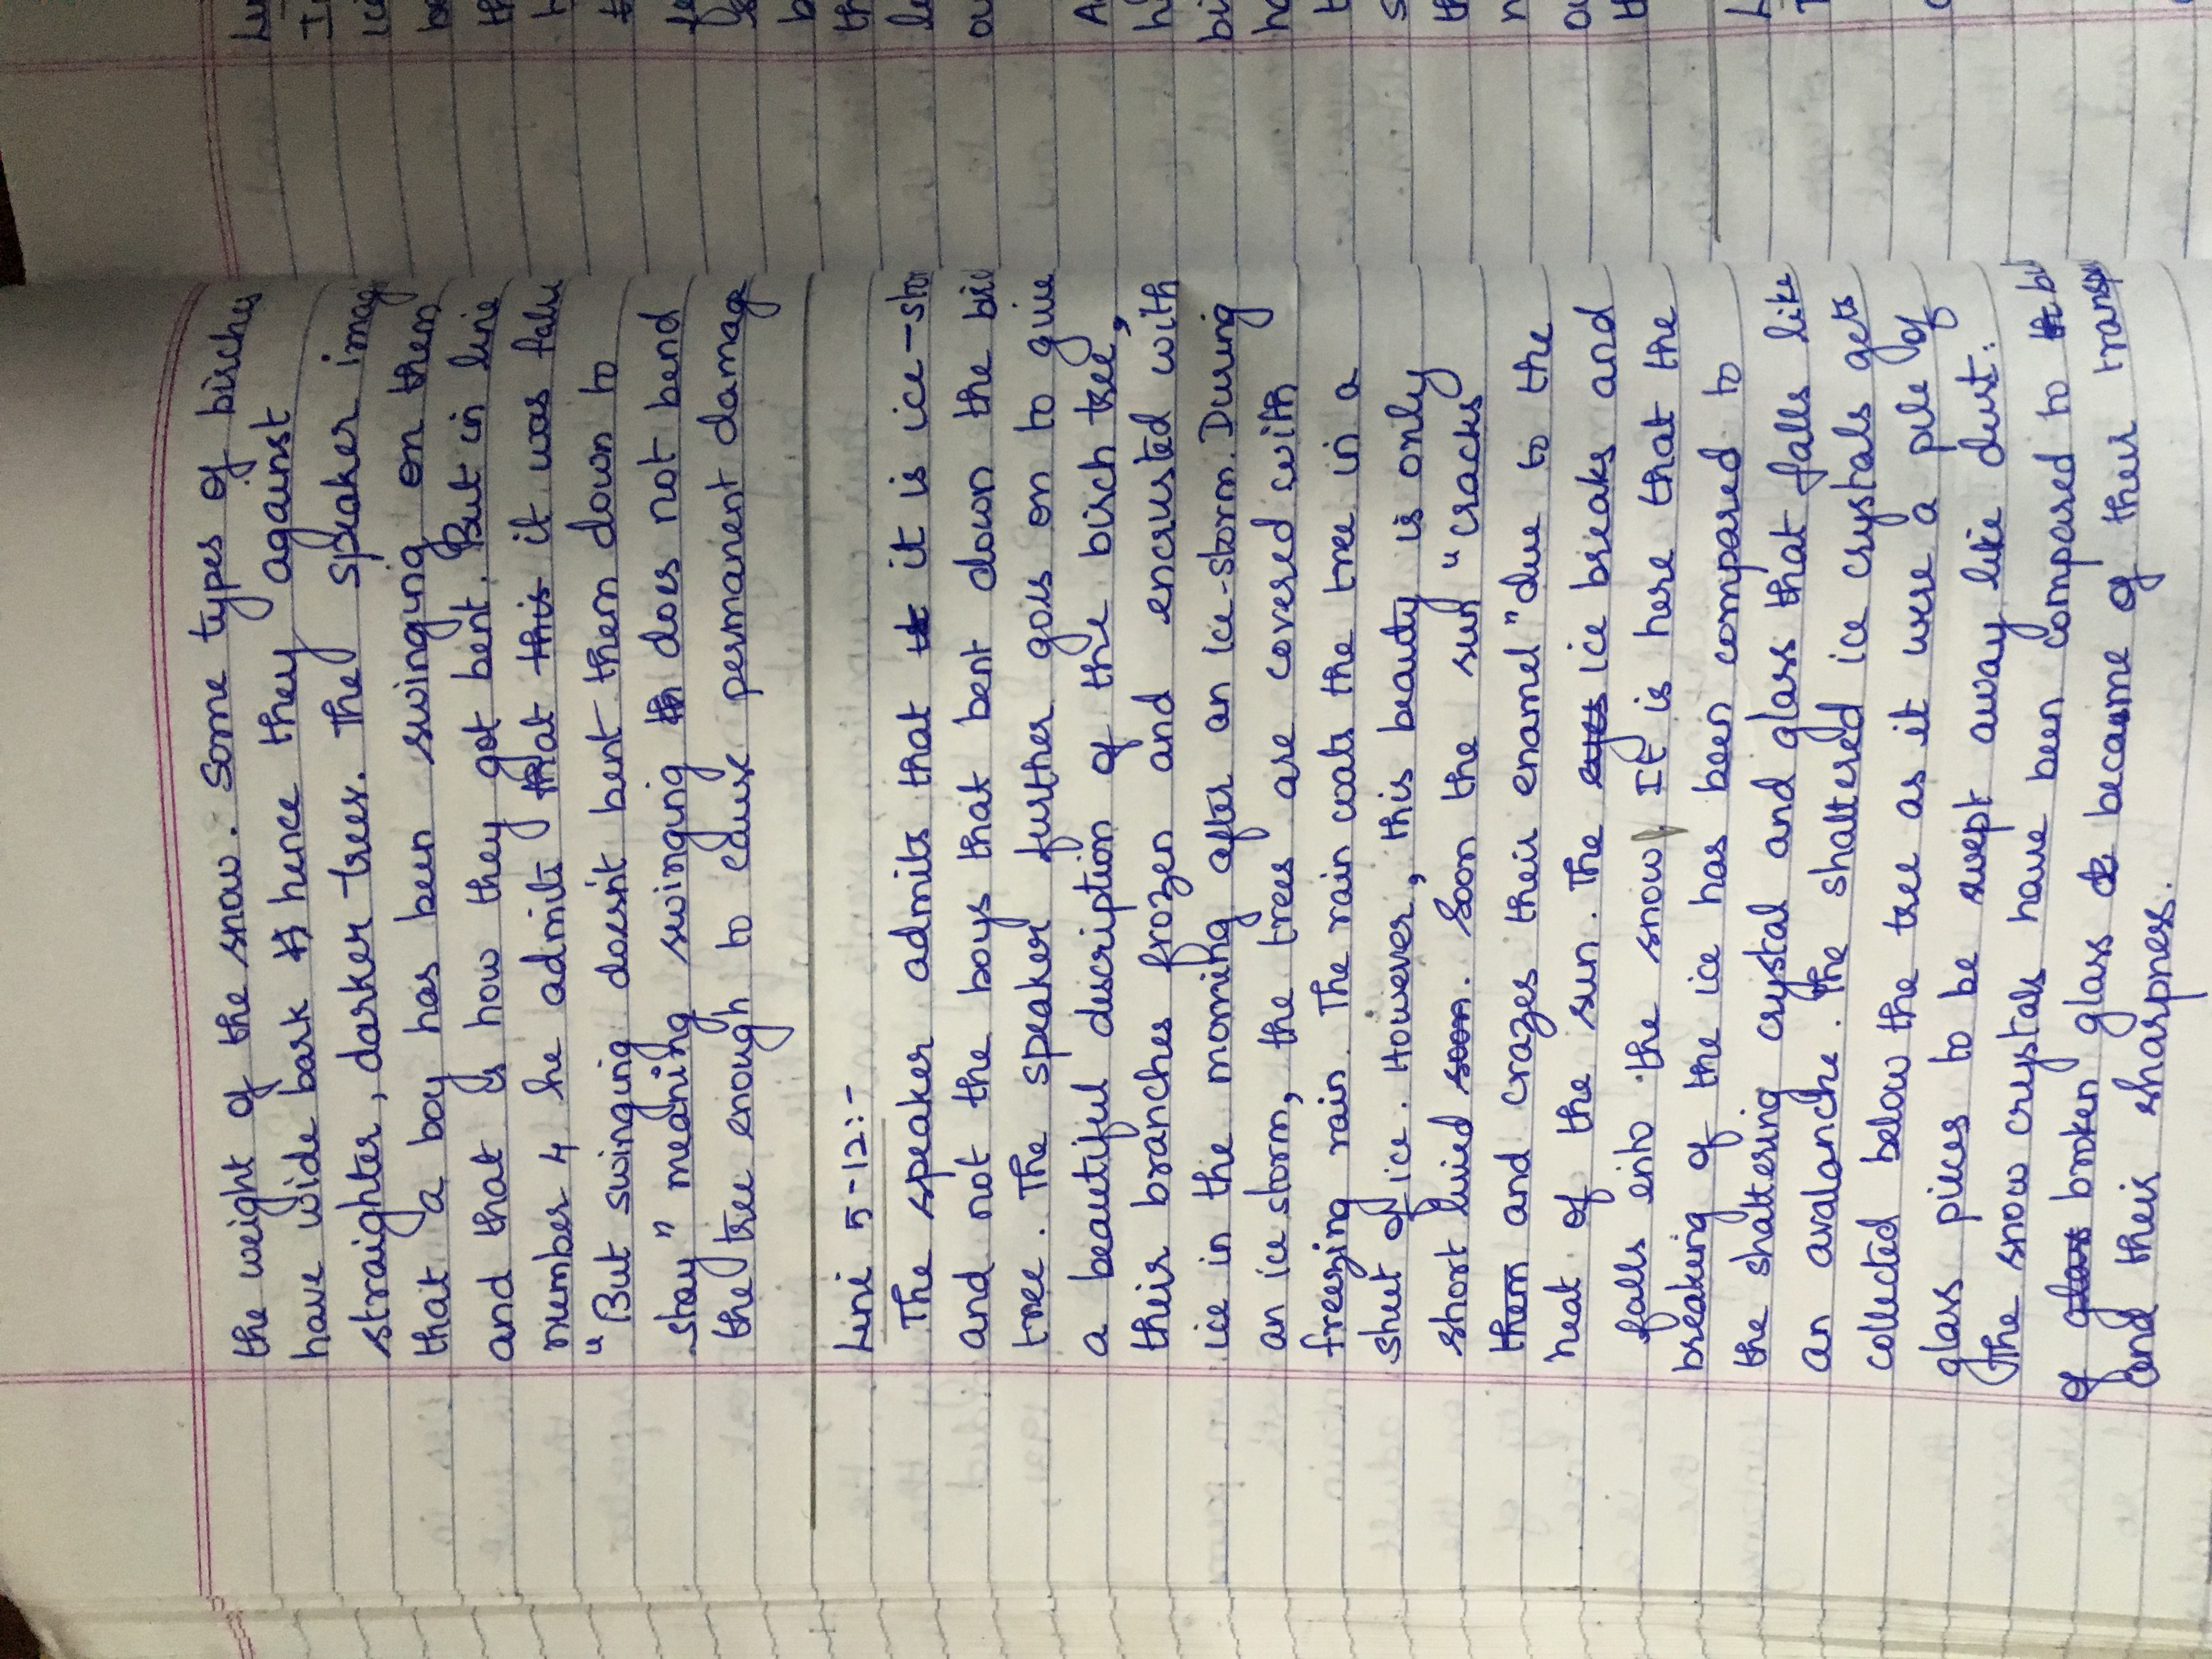 the weight of the snow. Some types of birches
have wide bark hence they against
straighter, darker trees. The speaker imag
that a boy has been swinging on them
and that is how they got bent. But in line
number 4 he admits that this it was false
"But swinging doesn't bent them down to
stay" meaning swinging th does not bend
the tree enough to cause permanent damage
Line 5-12:-
The speaker admits that it is ice-stor
and not the boys that bent down the bir
tree. The speaker further goes on to give
a beautiful description of the birch tree,
their branches frozen and encrusted with
ice in the morning after an ice-storm. During
an ice storm, the trees are covered with
freezing rain. The rain coats the tree in a
sheet of ice. However, this beauty is only
short lived soon. Soon the sun "cracks
them and crazes their enamel" due to the
heat of the sun. The eyes ice breaks and
falls into the snow. It is here that the
breaking of the ice has been compared to
the shattering crystal and glass that falls like
an avalanche. The shattered ice crystals gets
collected below the tree as it were a pile of
glass pieces to be swept away like dust.
The snow crystals have been compared to
of glass broken glass of their transp
and their sharpness.